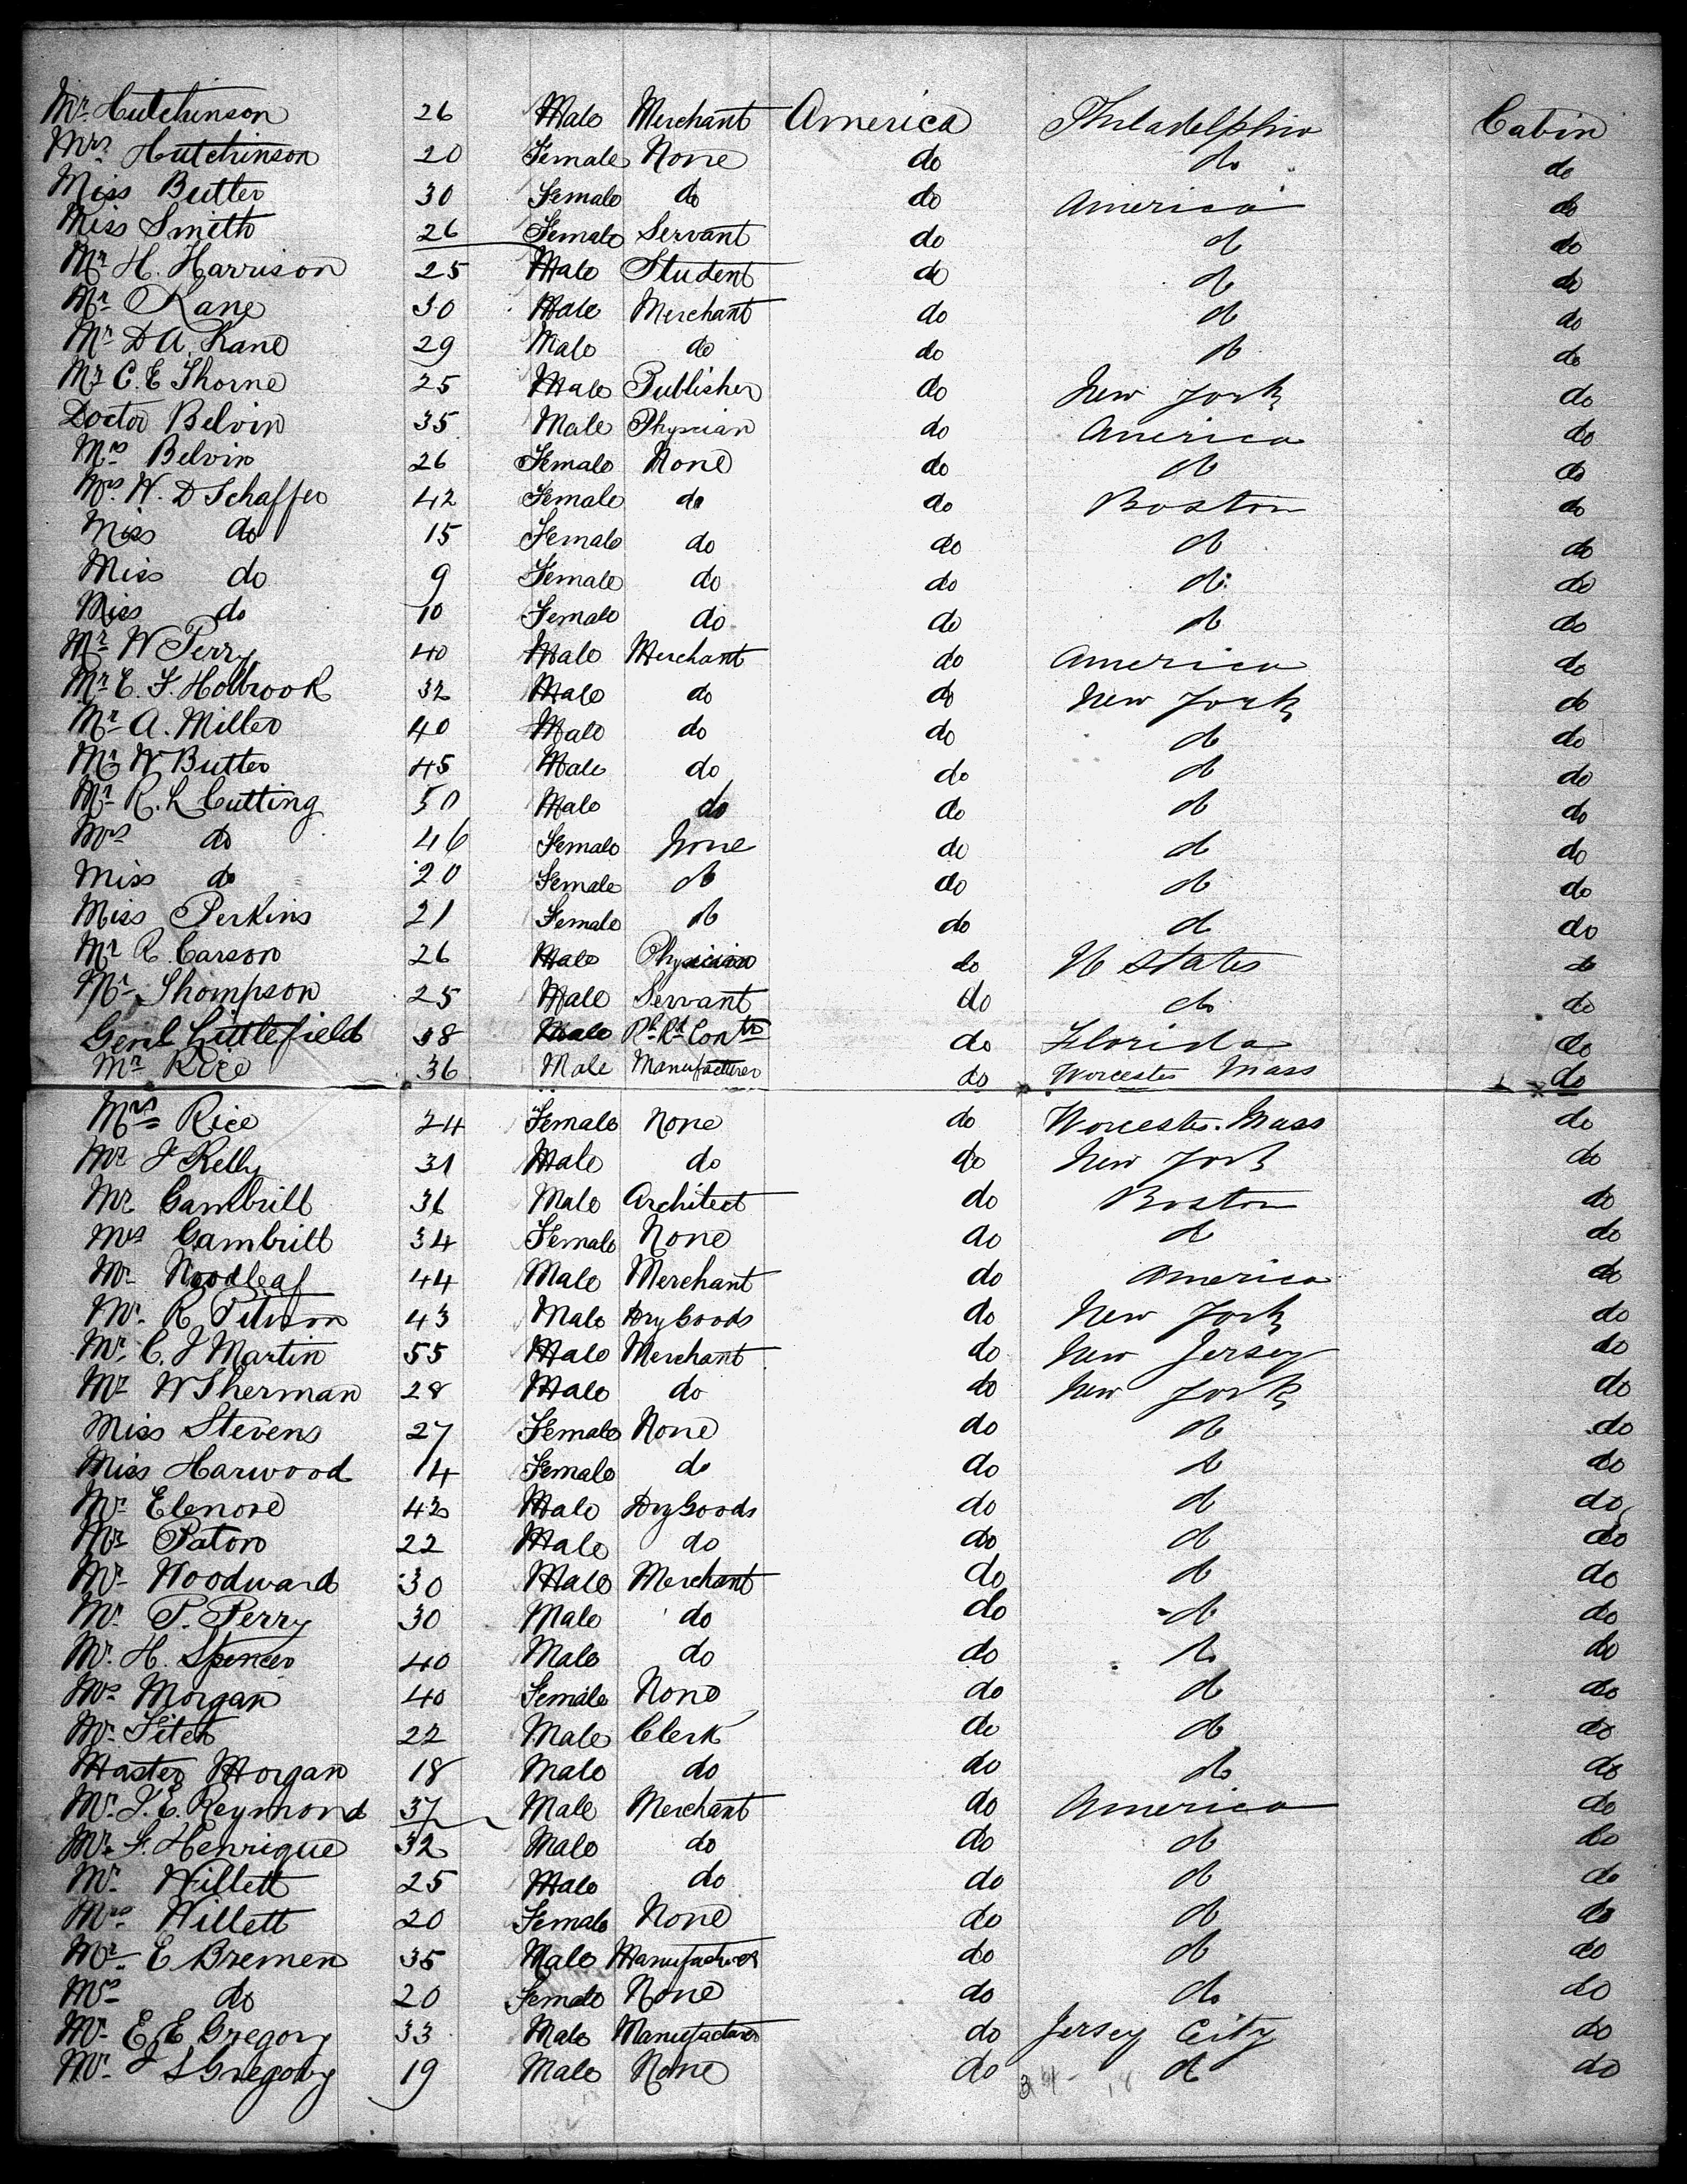 Mr Hutchinson 26 Male Merchant America Philadelphia Cabin
Mrs Hutchinson 20 Female None do do do
Miss Butler 30 Female do do America do
Miss Smith 26 Female Servant do do do
Mr H. Harrison 25 Male Student do do do
Mr Kane 30 Male Merchant do do do
Mr D A. Kane 29 Male do do do do
Mr C. E Thorne 25 Male Publisher do New York do
Doctor Belvin 35 Male Physcian do America do
Mrs Belvin 26 Female None do do do
Mrs W. D Schaffer 42 Female do do Boston do
Miss do 15 Female do do do do
Miss do 9 Female do do do do
Miss do 10 Female do do do do
Mr W Perry 40 Male Merchant do America do
Mr E. F. Holbrook 32 Male do do New York do
Mr A. Miller 40 Male do do do do
Mr W Butler 45 Male do do do do
Mr R. L Cutting 50 Male do do do do
Mrs do 46 Female None do do do
Miss do 20 Female do do do do
Miss Perkins 21 Female do do do do
Mr R. Carson 26 Male Physician do U States do
Mr Thompson 25 Male Servant do do do
Genl Littlefield 38 Male Rl Rd Contr do Florida do
Mr Rice 36 Male Manufacturer do Worcester Mass do
Mrs Rice 24 Female None do Worcester Mass do
Mr J Kelly 31 Male do do New York do
Mr Gambrill 36 Male Architect do Boston do
Mrs Gambrill 34 Female None do do do
Mr Woodleaf 44 Male Merchant do America do
Mr R 43 Male Dry Goods do New York do
Mr C. J Martin 55 Male Merchant do New Jersey do
Mr W Sherman 28 Male do do New York do
Miss Stevens 27 Female None do do do
Miss Harwood 14 Female do do do do
Mr Elenore 43 Male Dry Goods do do do
Mr Paton 22 Male do do do do
Mr Woodward 30 Male Merchant do do do
Mr P. Perry 30 Male do do do do
Mr H. Spencer 40 Male do do do do
Mrs Morgan 40 Female None do do do
Mr Fitch 22 Male Clerk do do do
Master Morgan 18 Male do do do do
Mr J. E. Reymond 37 Male Merchant do America do
Mr F. Henrique 32 Male do do do do
Mr Willett 25 Male do do do do
Mrs Willett 20 Female None do do do
Mr E Bremen 35 Male Manufacturer do do do
Mrs do 20 Female None do do do
Mr E. E Gregory 33 Male Manufacturer do Jersey City do
Mr J S Gregory 19 Male None do do do